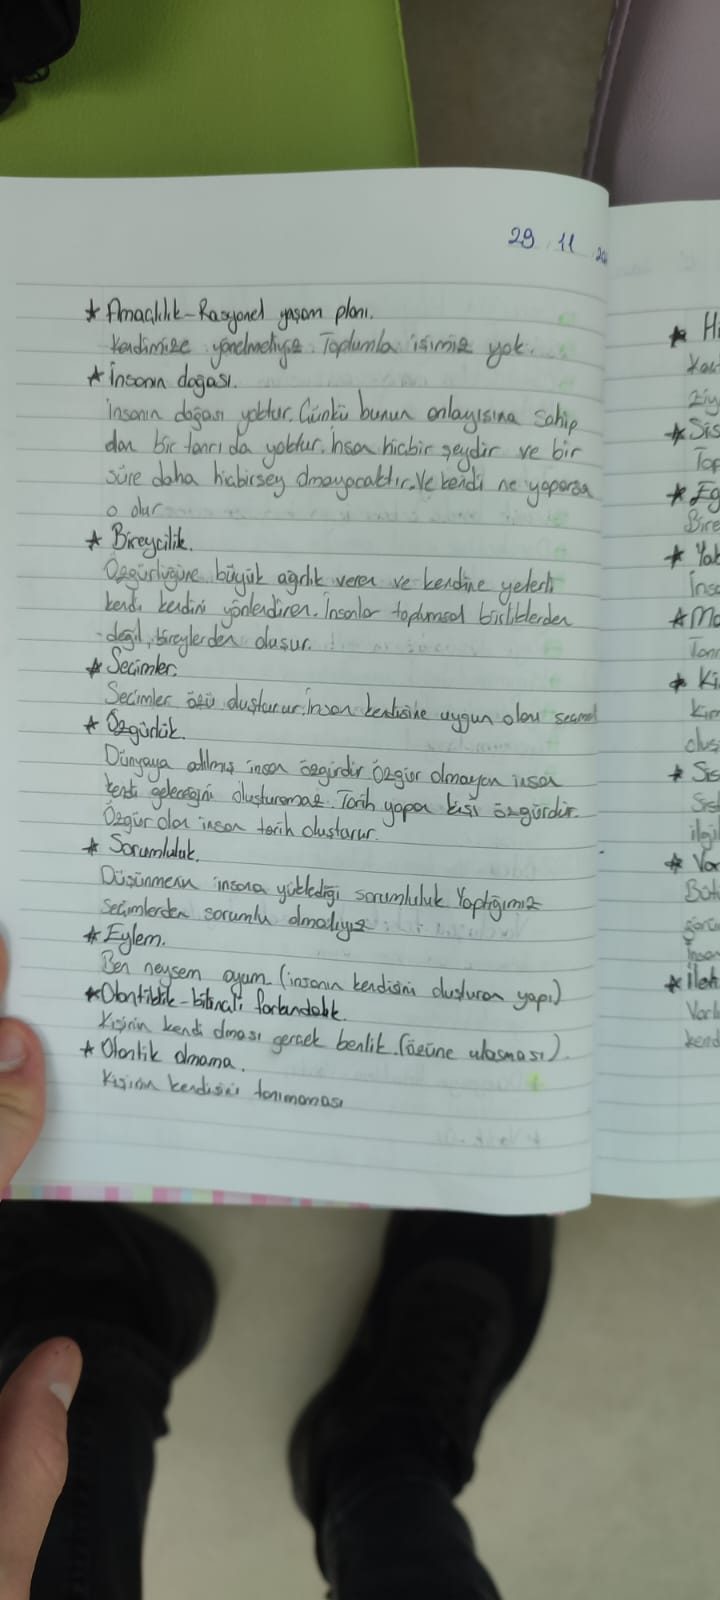 29 . 11 . 20
★ Amaçlılık - Rasyonel yaşam planı.
Kendimize yönelmeliyiz. Toplumla işimiz yok.
★ İnsanın doğası.
İnsanın doğası yoktur. Çünkü bunun anlayısına sahip
olan bir tanrı da yoktur. İnsan hiçbir şeydir ve bir
süre daha hiçbirşey olmayacaktır. Ve kendi ne yaparsa
o olur
★ Bireycilik.
Özgürlüğüne büyük ağırlık veren ve kendine yeterli
kendi kendini yönlendiren. İnsanlar toplumsal birliklerden
değil, bireylerden oluşur.
★ Seçimler.
Seçimler özü oluşturur. İnsan kendisine uygun olanı seçmeli
★ Özgürlük.
Dünyaya atılmış insan özgürdür. Özgür olmayan insan
kendi geleceğini oluşturamaz. Tarih yapan kişi özgürdür.
Özgür olan insan tarih oluşturur.
★ Sorumluluk.
Düşünmenin insana yüklediği sorumluluk. Yaptığımız
seçimlerden sorumlu olmalıyız.
★ Eylem.
Ben neysem oyum. (insanın kendisini oluşturan yapı)
★ Otantiklik - bilinçli farkındalık.
Kişinin kendi olması gerçek benlik. (özüne ulaşması).
★ Otantik olmama.
Kişinin kendisini tanımaması
★ Hi
ziy
★ Sis
Top
★ Eg
Bire
★ Yab
İnsa
★ Ma
Tanr
★ Ki
oluş
★ Sis
Sist
ilgil
★ Var
Bütü
görü
İnsan
★ İlet
Varlı
kend